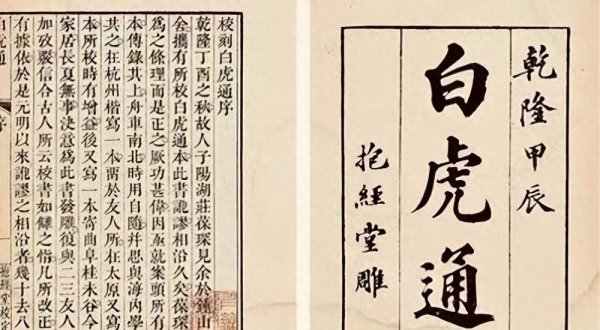 乾隆甲辰
白虎通
抱經堂雕
校刻白虎通序
乾隆丁酉之秋故人子陽湖莊葆琛見余於鍾山
舍攜有所校白虎通本此書譌謬相沿久矣葆琛
爲之條理而是正之厥功甚偉因亟就案頭所有
本傳錄其上舟車南北時用自隨并思與海內學
共之在杭州楷寫一本留於友人所在太原又寫
本所校時有增益後又寫一本寄曲阜桂未谷今
家居長夏無事決意爲此書發雕復與二三友人
加攷覈信合古人所云校書如讎之恉凡所改正
有據依於是元明以來譌謬之相沿者幾十去八
白虎通
序